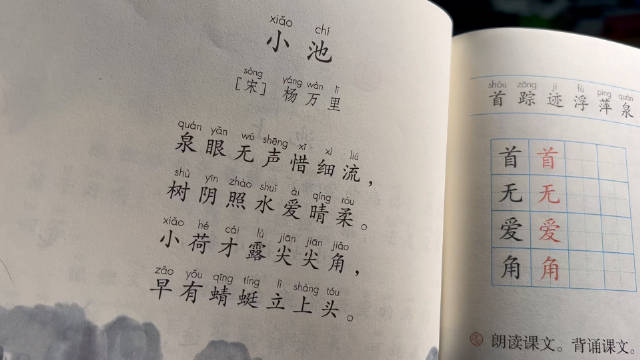 xiǎo chí
小池
sòng yáng wàn lǐ
[宋] 杨万里
quán yǎn wú shēng xī xì liú
泉眼无声惜细流，
shù yīn zhào shuǐ ài qíng róu
树阴照水爱晴柔。
xiǎo hé cái lù jiān jiān jiǎo
小荷才露尖尖角，
zǎo yǒu qīng tíng lì shàng tóu
早有蜻蜓立上头。
shǒu zōng jì fú píng quán
首踪迹浮萍泉
首 首
无 无
爱 爱
角 角
朗读课文。背诵课文。